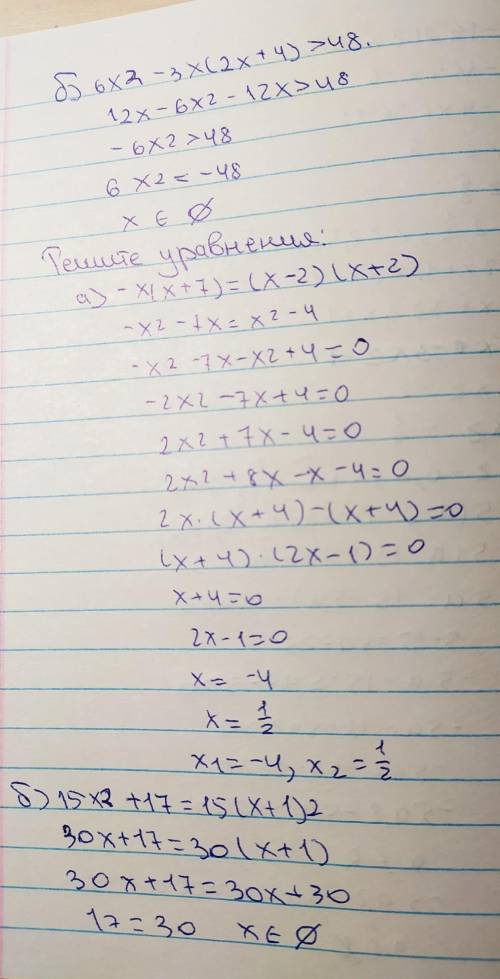 б) 6x2 - 3x(2x+4) > 48.
12x - 6x2 - 12x > 48
- 6x2 > 48
6x2 = -48
x ∈ ∅
Решите уравнения:
а) -x(x+7) = (x-2)(x+2)
-x2 - 7x = x2 - 4
-x2 - 7x - x2 + 4 = 0
-2x2 - 7x + 4 = 0
2x2 + 7x - 4 = 0
2x2 + 8x - x - 4 = 0
2x·(x+4) - (x+4) = 0
(x+4)·(2x-1) = 0
x+4=0
2x-1=0
x = -4
x = 1/2
x1 = -4, x2 = 1/2
б) 15x2 + 17 = 15(x+1)2
30x+17 = 30(x+1)
30x+17 = 30x+30
17 = 30 x ∈ ∅